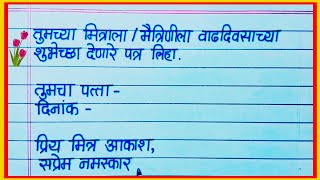 तुमच्या मित्राला / मैत्रिणीला वाढदिवसाच्या
शुभेच्छा देणारे पत्र लिहा.
तुमचा पत्ता-
दिनांक -
प्रिय मित्र आकाश,
सप्रेम नमस्कार